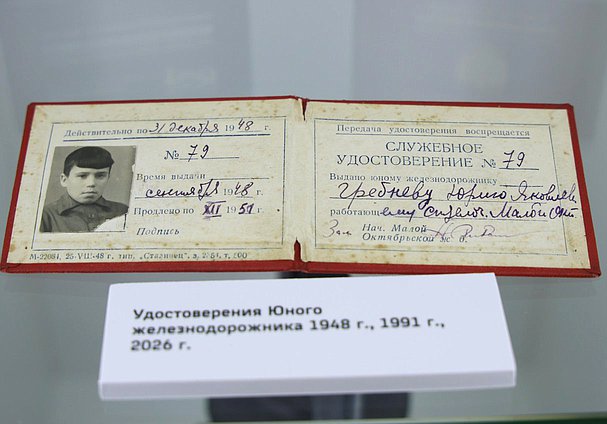 Действительно по 31 декабря 1948 г.
№ 79
Время выдачи
сентября 1948 г.
Продлено по XII 1951
Подпись
М-22084, 25-VIII-48 г. тип. „Сталинец", з. 2654, т. 500
Передача удостоверения воспрещается
СЛУЖЕБНОЕ
УДОСТОВЕРЕНИЕ № 79
Выдано юному железнодорожнику
Гребневу Юрию Яковлев
работающему Малой
Зам Нач. Малой
Октябрьской ж. д.
Удостоверения Юного
железнодорожника 1948 г., 1991 г.,
2026 г.